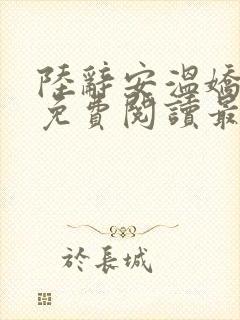 陸辭安溫嬌
免費閱讀最
於長城